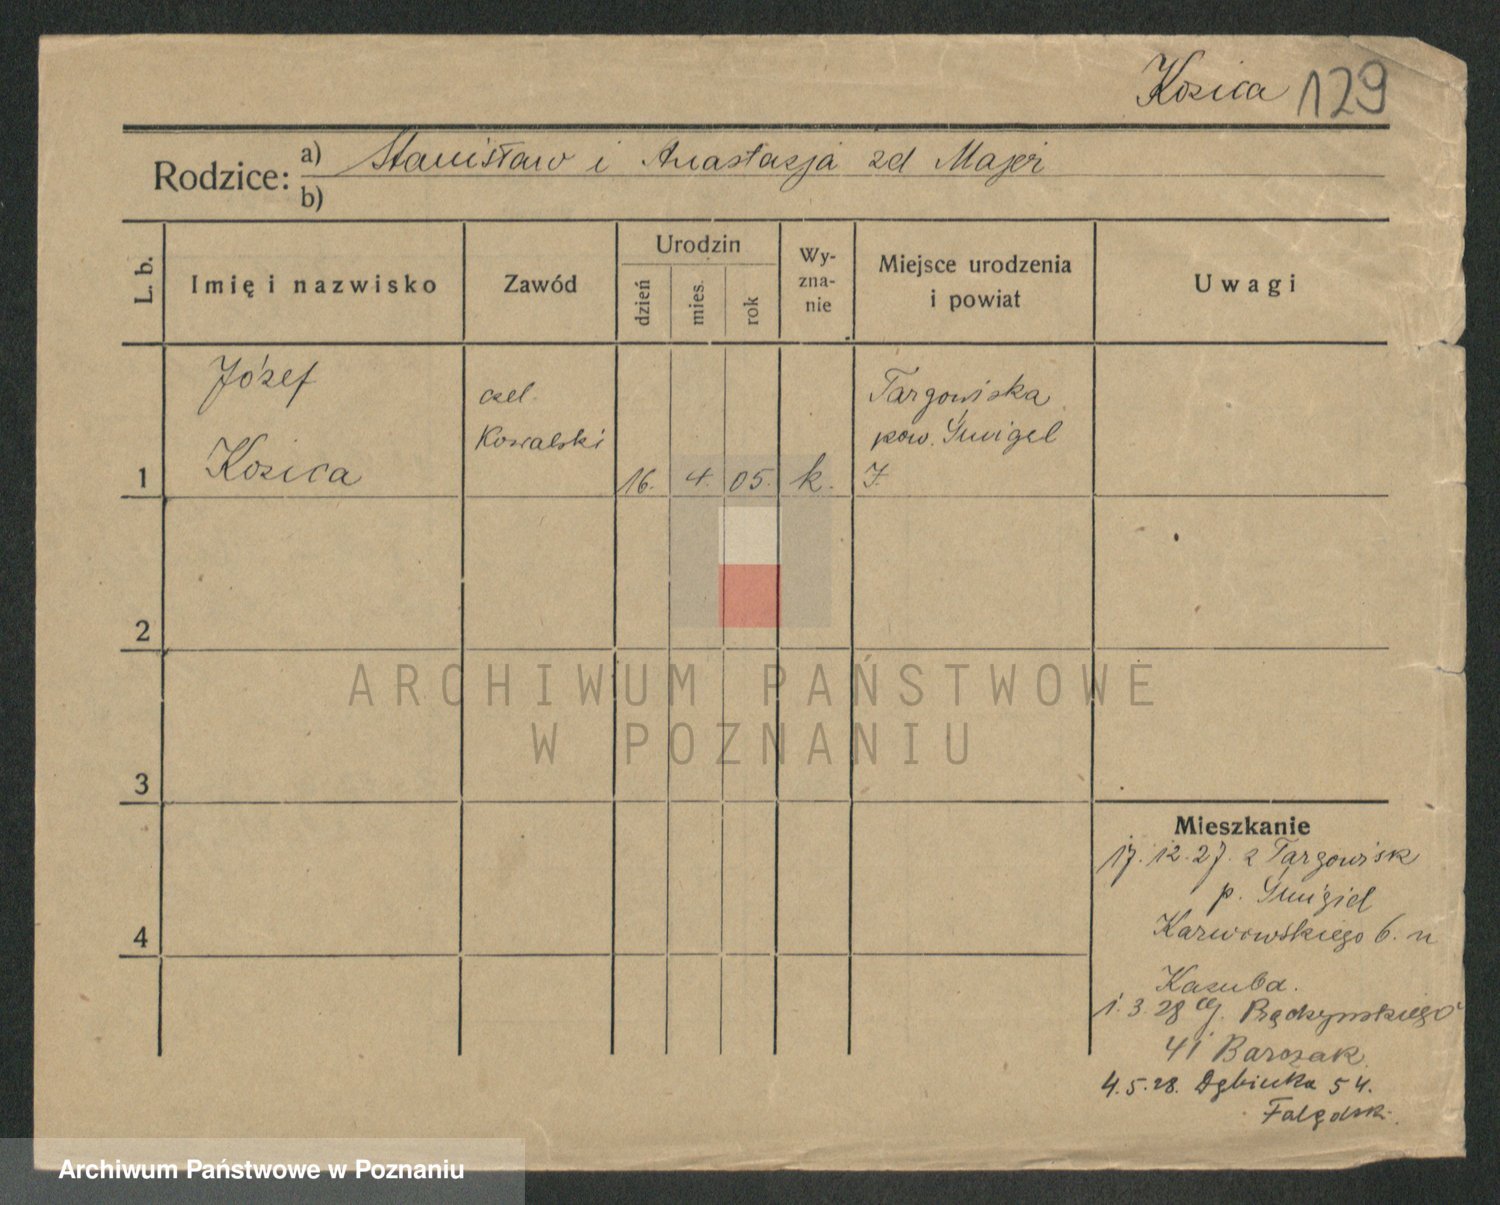 Kozica 129
Rodzice: a) Stanisław i Anastazja zd Majer
b)
L. b.
Imię i nazwisko
Zawód
Urodzin
dzień
mies.
rok
Wy-
zna-
nie
Miejsce urodzenia
i powiat
Uwagi
Józef
Kozica
czel.
Kowalski
16. 4. 05. k.
Targowiska
pow. Śmigel
1
2
3
4
ARCHIWUM PAŃSTWOWE
W POZNANIU
Mieszkanie
17.12.27. z Targowisk
p. Śmigiel
Karwowskiego 6. u
Kaczuba.
1.3.28
41 Barczak
4.5.28. Dębinka 54.
Archiwum Państwowe w Poznaniu